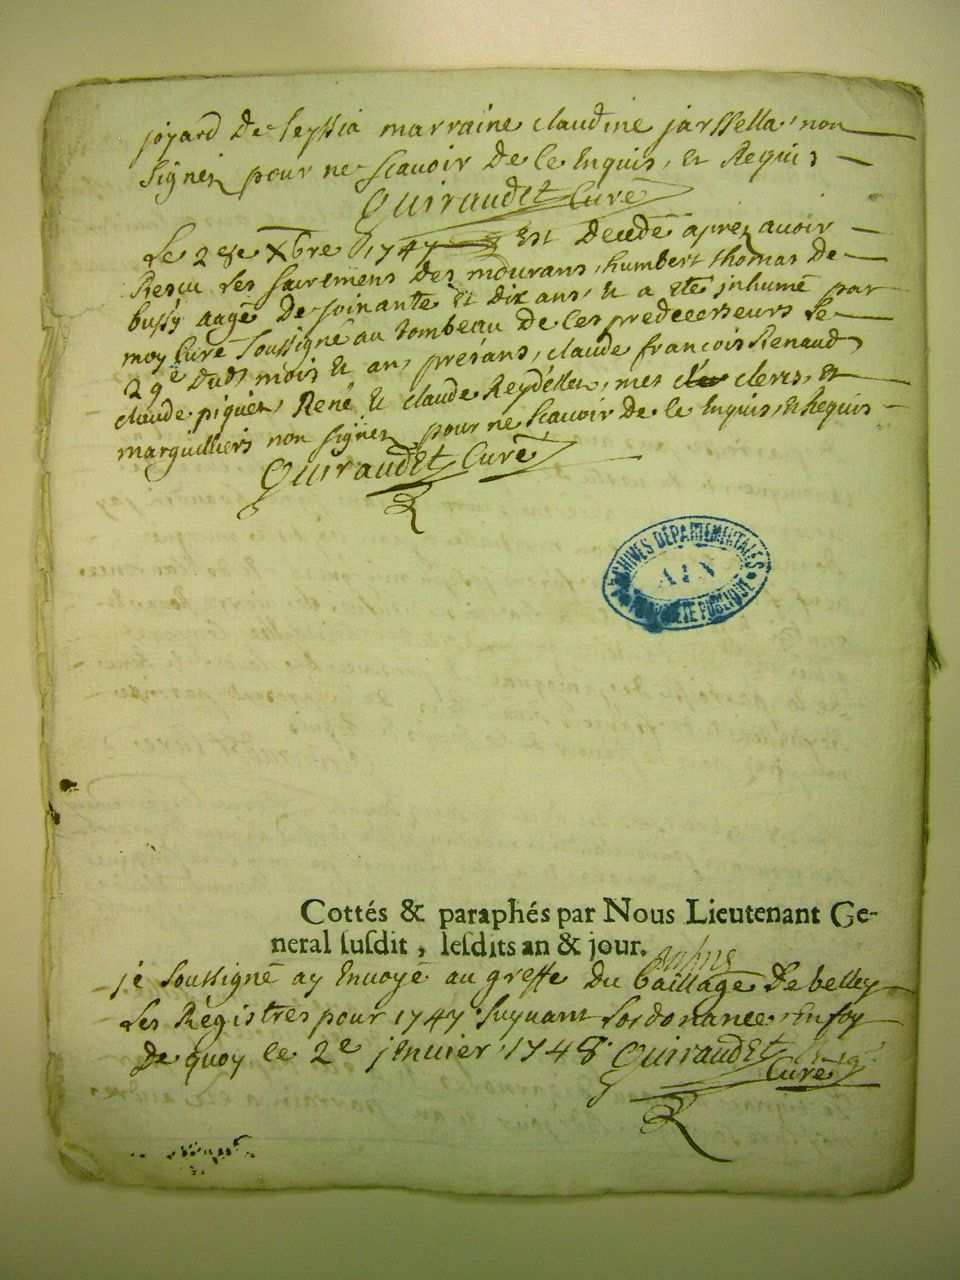 joyard de leyssia marraine claudine jarssella, non
signez pour ne scavoir de ce enquis, et Requis
Guiraudet Curé
Le 28e Xbre 1747 est decedé aprez avoir
Resçu les sacremens des mourans, humbert thomas de
bussy aagé de soixante et dix ans, et a eté jnhumé par
moy Curé soussigné au tombeau de ces predecesseurs le
29e dudt mois et an, présans, claude françois Renaud,
claude piquet, René et claude Reydellet, mes clercs, et
marguilliers non signez pour ne scavoir de ce enquis, et Requis
Guiraudet Curé
ARCHIVES DÉPARTEMENTALES
AIN
PROPRIÉTÉ PUBLIQUE
Cottés & paraphés par Nous Lieutenant Ge-
neral susdit, lesdits an & jour.
jé soussigné ay Envoyé au greffe du bailliage de belley
les Régistres pour 1747 suyvant lordonance, En foy
de quoy le 2e jenvier 1748 Guiraudet
Curé